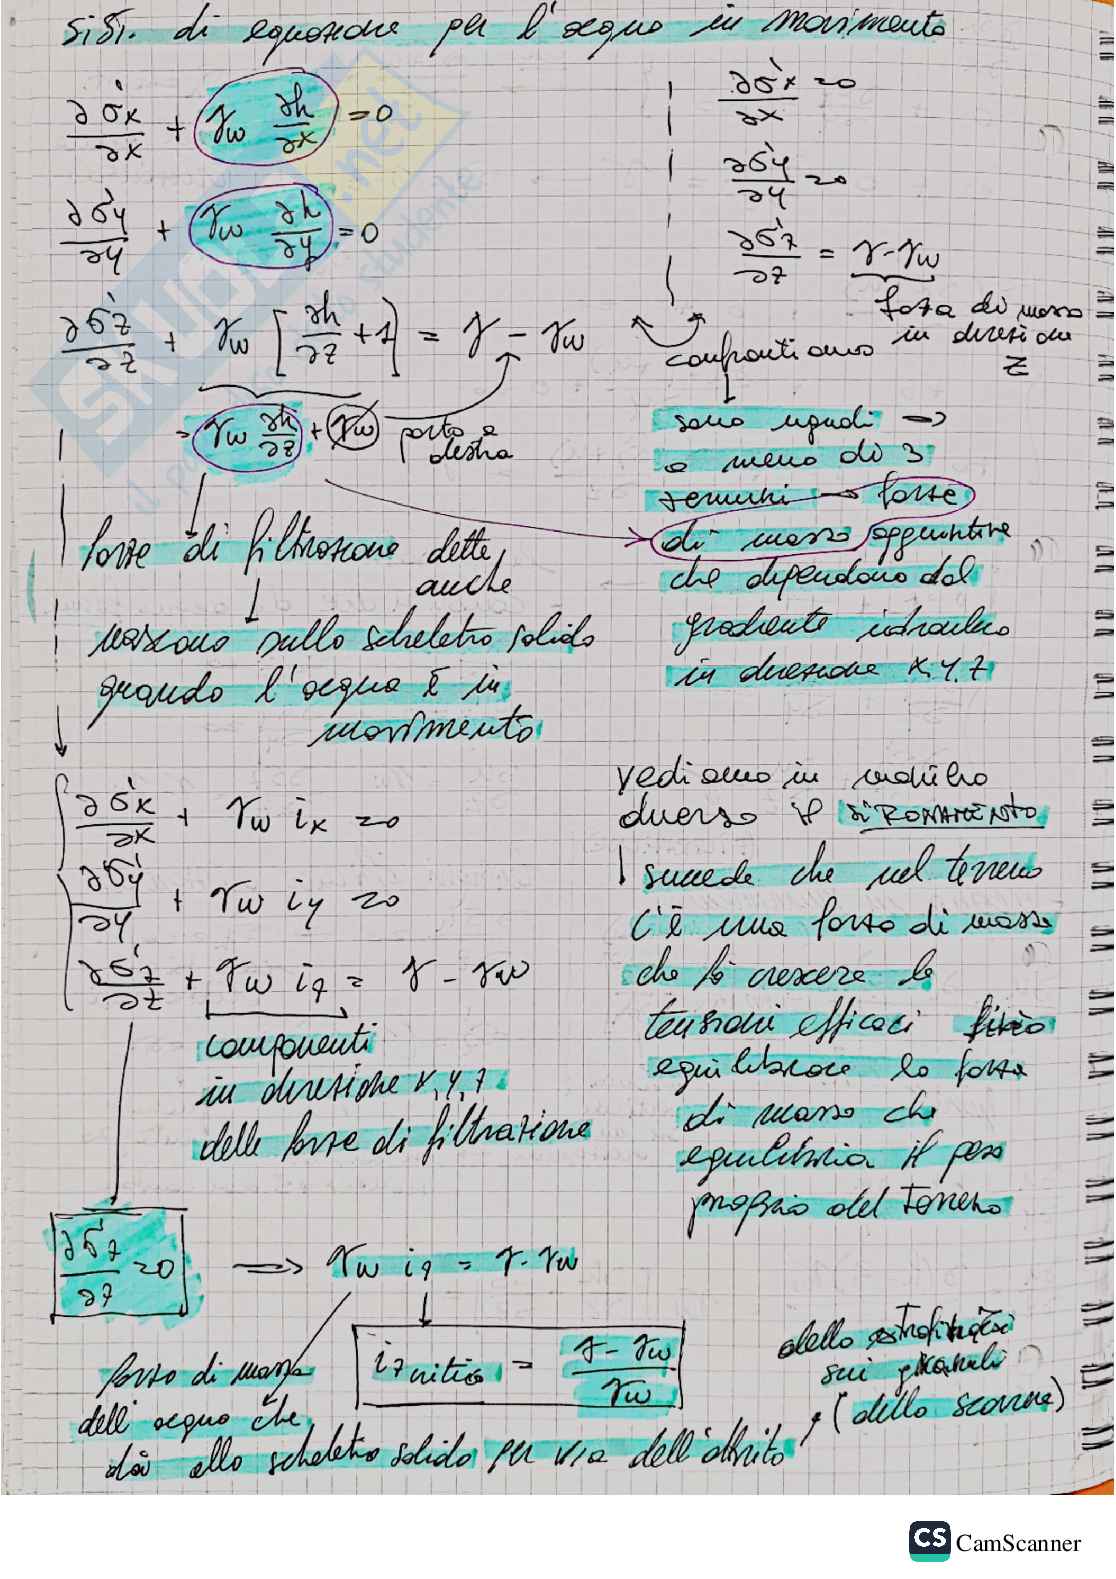 SIST. di equazione per l'acqua in movimento
∂σ'x/∂x + γw ∂h/∂x = 0
∂σ'y/∂y + γw ∂h/∂y = 0
∂σ'z/∂z + γw [∂h/∂z + 1] = γ - γw
= γw ∂h/∂z + γw porto a destra
∂σ'x/∂x = 0
∂σ'y/∂y = 0
∂σ'z/∂z = γ - γw
forza di massa
in direzione
z
confrontiamo
sono uguali →
a meno di 3
termini → forze
di massa aggiuntive
che dipendono dal
gradiente idraulico
in direzione x,y,z
forze di filtrazione dette
anche
nascono sullo scheletro solido
quando l'acqua è in
movimento
∂σ'x/∂x + γw ix = 0
∂σ'y/∂y + γw iy = 0
∂σ'z/∂z + γw iz = γ - γw
componenti
in direzione x,y,z
delle forze di filtrazione
vediamo in maniera
diverso il SIFONAMENTO
succede che nel terreno
c'è una forza di massa
che fà crescere le
tensioni efficaci
equilibrare la forza
di massa che
equilibria il peso
proprio del terreno
∂σ'z/∂z = 0 ⟹ γw iz = γ - γw
iz critico = γ - γw / γw
forza di massa
dell'acqua che
dà allo scheletro solido per via dell'attrito
dello
sui granuli
(dello scorrere)
SKUOLA.net
CS CamScanner